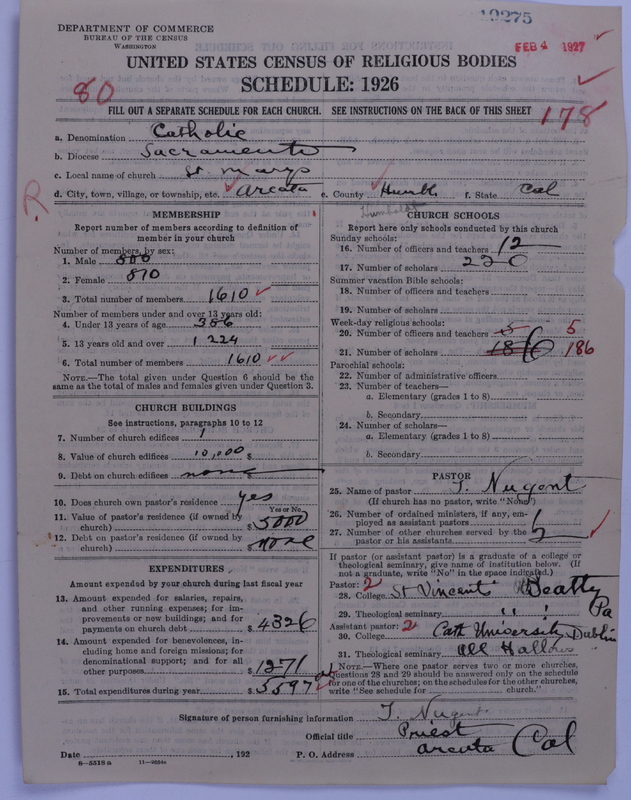 19275
DEPARTMENT OF COMMERCE
BUREAU OF THE CENSUS
WASHINGTON
FEB 4 1927
UNITED STATES CENSUS OF RELIGIOUS BODIES
SCHEDULE: 1926
80
178
FILL OUT A SEPARATE SCHEDULE FOR EACH CHURCH. SEE INSTRUCTIONS ON THE BACK OF THIS SHEET
a. Denomination Catholic
b. Diocese Sacramento
c. Local name of church St Marys
R
d. City, town, village, or township, etc. Arcata e. County Humb f. State Cal
Humboldt
MEMBERSHIP
Report number of members according to definition of
member in your church
Number of members, by sex:
1. Male 800
2. Female 810
3. Total number of members 1610
Number of members under and over 13 years old:
4. Under 13 years of age 386
5. 13 years old and over 1224
6. Total number of members 1610
NOTE.—The total given under Question 6 should be the
same as the total of males and females given under Question 3.
CHURCH BUILDINGS
See instructions, paragraphs 10 to 12
7. Number of church edifices 1
8. Value of church edifices $ 10,000
9. Debt on church edifices $ none
10. Does church own pastor's residence yes
Yes or No
11. Value of pastor's residence (if owned by
church) $ 5000
12. Debt on pastor's residence (if owned by
church) $ none
EXPENDITURES
Amount expended by your church during last fiscal year
13. Amount expended for salaries, repairs,
and other running expenses; for im-
provements or new buildings; and for
payments on church debt $ 4326
14. Amount expended for benevolences, in-
cluding home and foreign missions; for
denominational support; and for all
other purposes $ 1271
15. Total expenditures during year $ 5597
CHURCH SCHOOLS
Report here only schools conducted by this church
Sunday schools:
16. Number of officers and teachers 12
17. Number of scholars 220
Summer vacation Bible schools:
18. Number of officers and teachers
19. Number of scholars
Week-day religious schools:
20. Number of officers and teachers 5 5
21. Number of scholars 186 186
Parochial schools:
22. Number of administrative officers
23. Number of teachers—
a. Elementary (grades 1 to 8)
b. Secondary
24. Number of scholars—
a. Elementary (grades 1 to 8)
b. Secondary
PASTOR
25. Name of pastor T. Nugent
(If church has no pastor, write "None")
26. Number of ordained ministers, if any, em-
ployed as assistant pastors
27. Number of other churches served by the
pastor or his assistants
If pastor (or assistant pastor) is a graduate of a college or
theological seminary, give name of institution below. (If
not a graduate, write "No" in the space indicated.)
Pastor: 2
28. College St Vincent Beatty
Pa
29. Theological seminary " "
Assistant pastor: 2
30. College Cath University Dublin
31. Theological seminary All Hallows
NOTE.—Where one pastor serves two or more churches,
Questions 28 and 29 should be answered only on the schedule
for one of the churches; on the schedules for the other churches,
write "See schedule for church."
Signature of person furnishing information T. Nugent
Official title Priest
Date , 192 P. O. Address Arcata Cal
8—5518 a 11—9554a